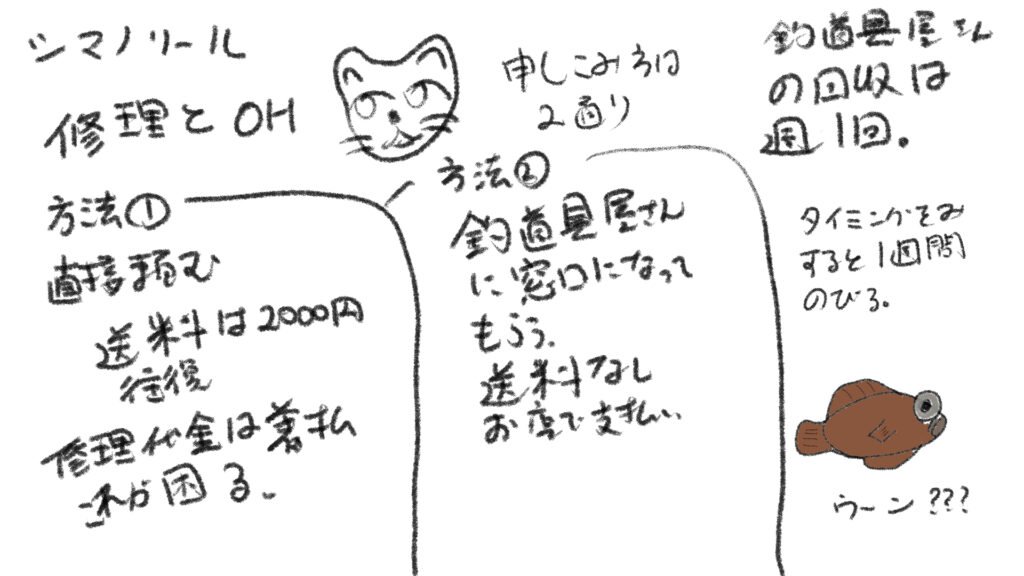 シマノリール
修理とOH
申しこみ方は
2通り
方法①
直接頼む
送料は2000円
往復
修理代金は着払
これが困る。
方法②
釣道具屋さん
に窓口になって
もらう。
送料なし
お店で支払い。
釣道具屋さん
の回収は
週1回。
タイミングをみ
すると1週間
のびる。
ウーン???